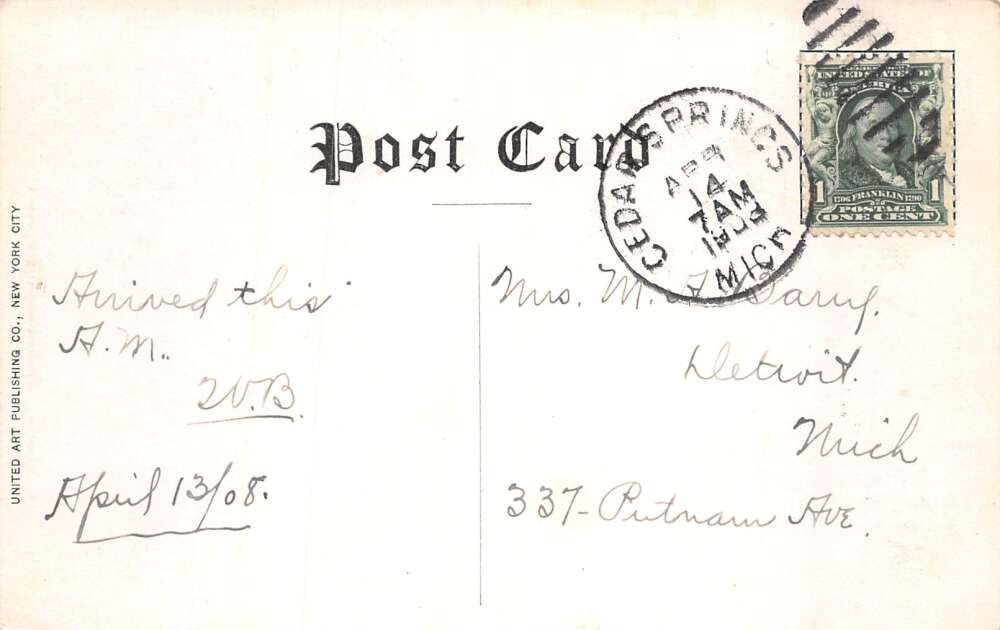 Post Card
CEDAR SPRINGS
APR
14
7 AM
MICH
UNITED STATES OF
AMERICA
1 1706 FRANKLIN 1790 1
POSTAGE
ONE CENT
UNITED ART PUBLISHING CO., NEW YORK CITY
Arrived this
A.M.
W.B.
April 13/08.
Mrs. M.
Detroit.
Mich
337- Putnam Ave.